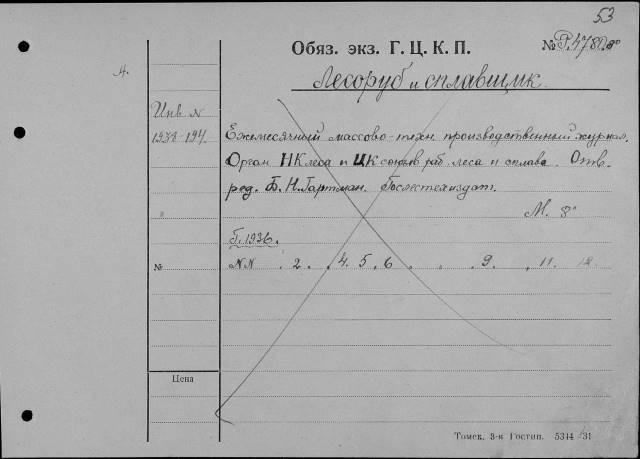 53
Обяз. экз. Г. Ц. К. П. № Р.4782 8°
Лесоруб и сплавщик
4.
Инв N
1938-194.
Ежемесячный массово-техн производственный журнал.
Орган НКлеса и ЦК союзов раб. леса и сплава. Отв.
ред. Б. Н. Гартман. Гослестехиздат.
М. 8°
Г. 1936.
№ NN 2, 4. 5. 6 9. 11. 12.
Цена
Томск. 3-я Гостип. 5314/31